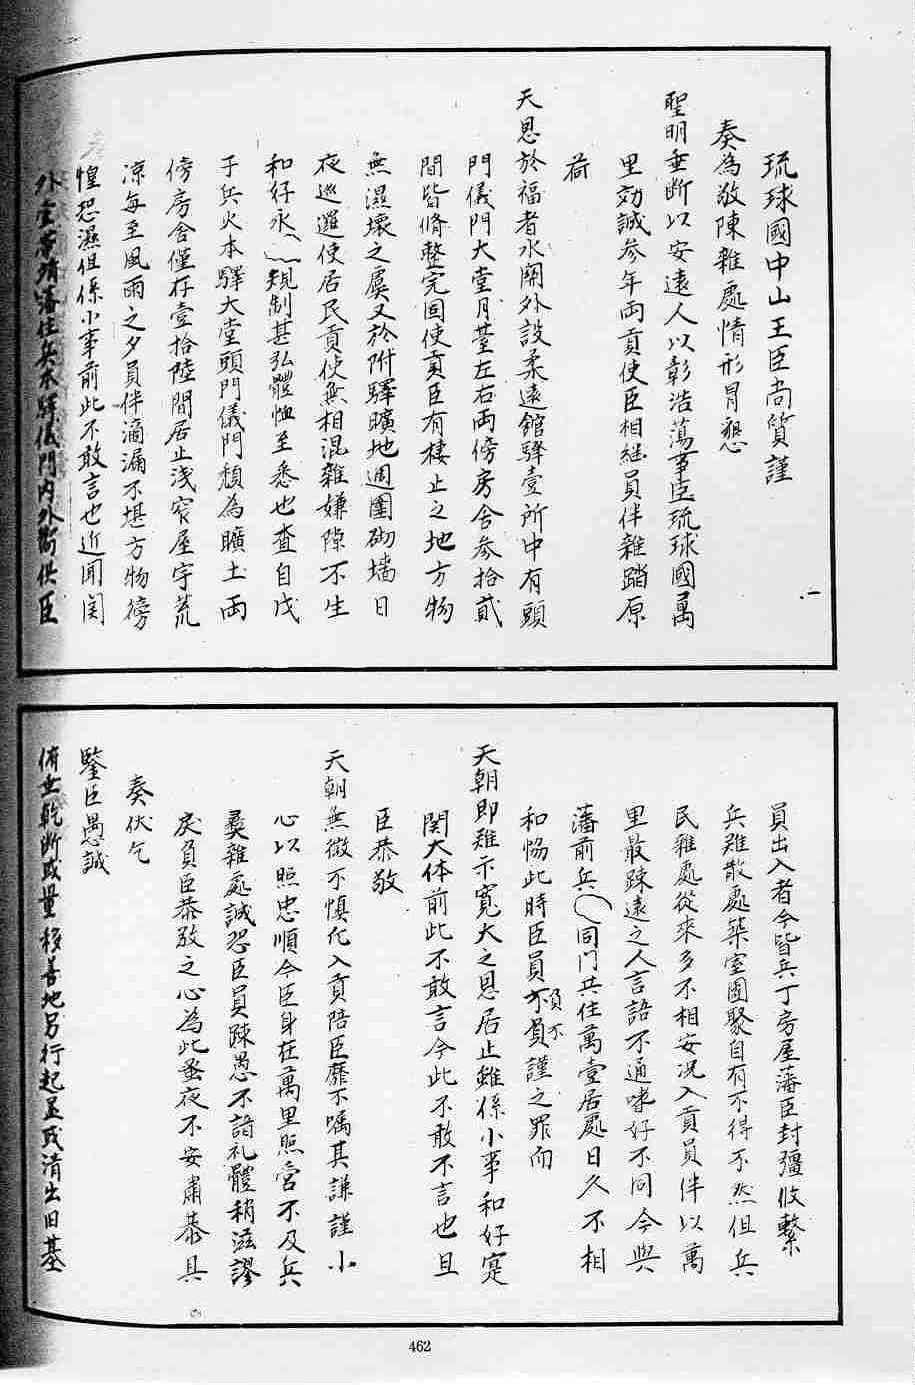 琉球國中山王臣尚質謹
奏為敬陳雜處情形冒懇
聖明垂断以安遠人以彰浩蕩事臣琉球國萬
里効誠参年両貢使臣相継員伴雜踏原
荷
天恩於福省水関外設柔遠舘驛壹所中有頭
門儀門大堂月臺左右両傍房舎参拾貳
間皆脩整完固使貢臣有棲止之地方物
無濕壊之虞又於附驛曠地週圍砌墻日
夜巡邏使居民貢使無相混雜嫌隙不生
和好永規制甚弘體恤至悉也查自戊
子兵火本驛大堂頭門儀門頽為曠土両
傍房舎僅存壹拾陸間居止浅窄屋宇荒
凉每至風雨之夕員伴滴漏不堪方物徬
惶恐濕但係小事前此不敢言也近聞関
外藩住兵本驛儀門内外供臣
員出入者今皆兵丁房屋藩臣封彊攸繫
兵難散處築室團聚自有不得不然但兵
民雜處從來多不相安况入貢員伴以萬
里最踈遠之人言語不通嗜好不同今與
藩前兵同門共住萬壹居處日久不相
和恊此時臣員不負不負謹之罪而
天朝即雖示寛大之恩居止雖係小事和好寔
関大体前此不敢言今此不敢不言也且
臣恭敬
天朝無微不慎凢入貢陪臣靡不嘱其謙謹小
心以照忠順今臣身在萬里照管不及兵
彜雜處誠恐臣員踈愚不諳礼體稍滋謬
戾負臣恭敬之心為此蚤夜不安肅恭具
奏伏乞
鑒臣愚誠
俯垂乾断或量移善地另行起盖或清出旧基
一
462